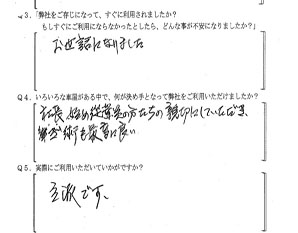 Q3.「弊社をご存じになって、すぐに利用されましたか？
もしすぐにご利用にならなかったとしたら、どんな事が不安になりましたか？」
お世話になりました
Q4. いろいろな車屋がある中で、何が決め手となって弊社をご利用いただけましたか？
社長始め従業員の方たちの親切にしていただき、
技術も最高に良い
Q5. 実際にご利用いただいていかがですか？
立派です、